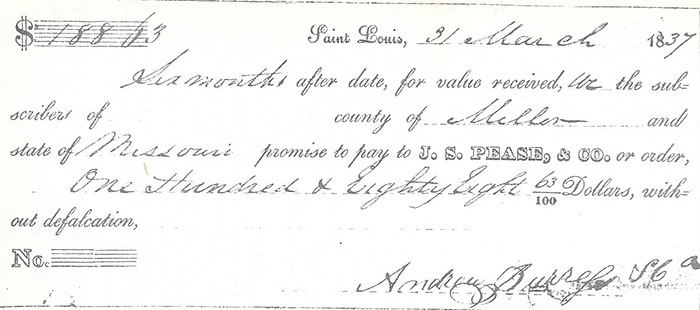 $ 188 63 Saint Louis, 31 March 1837
Six months after date, for value received, We the sub-
scribers of county of Miller and
state of Missouri promise to pay to J. S. PEASE, & CO. or order,
One Hundred & Eighty Eight 63/100 Dollars, with-
out defalcation,
No.
Andrew